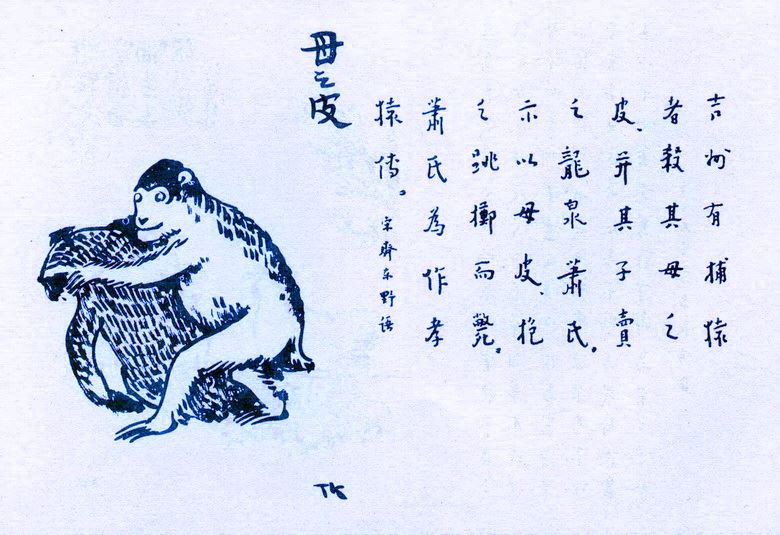 母之皮
吉州有捕猿
者殺其母之
皮、并其子賣
之龍泉蕭氏。
示以母皮、抱
之跳擲而斃。
蕭氏為作孝
猿傳。宋齊東野語
TK